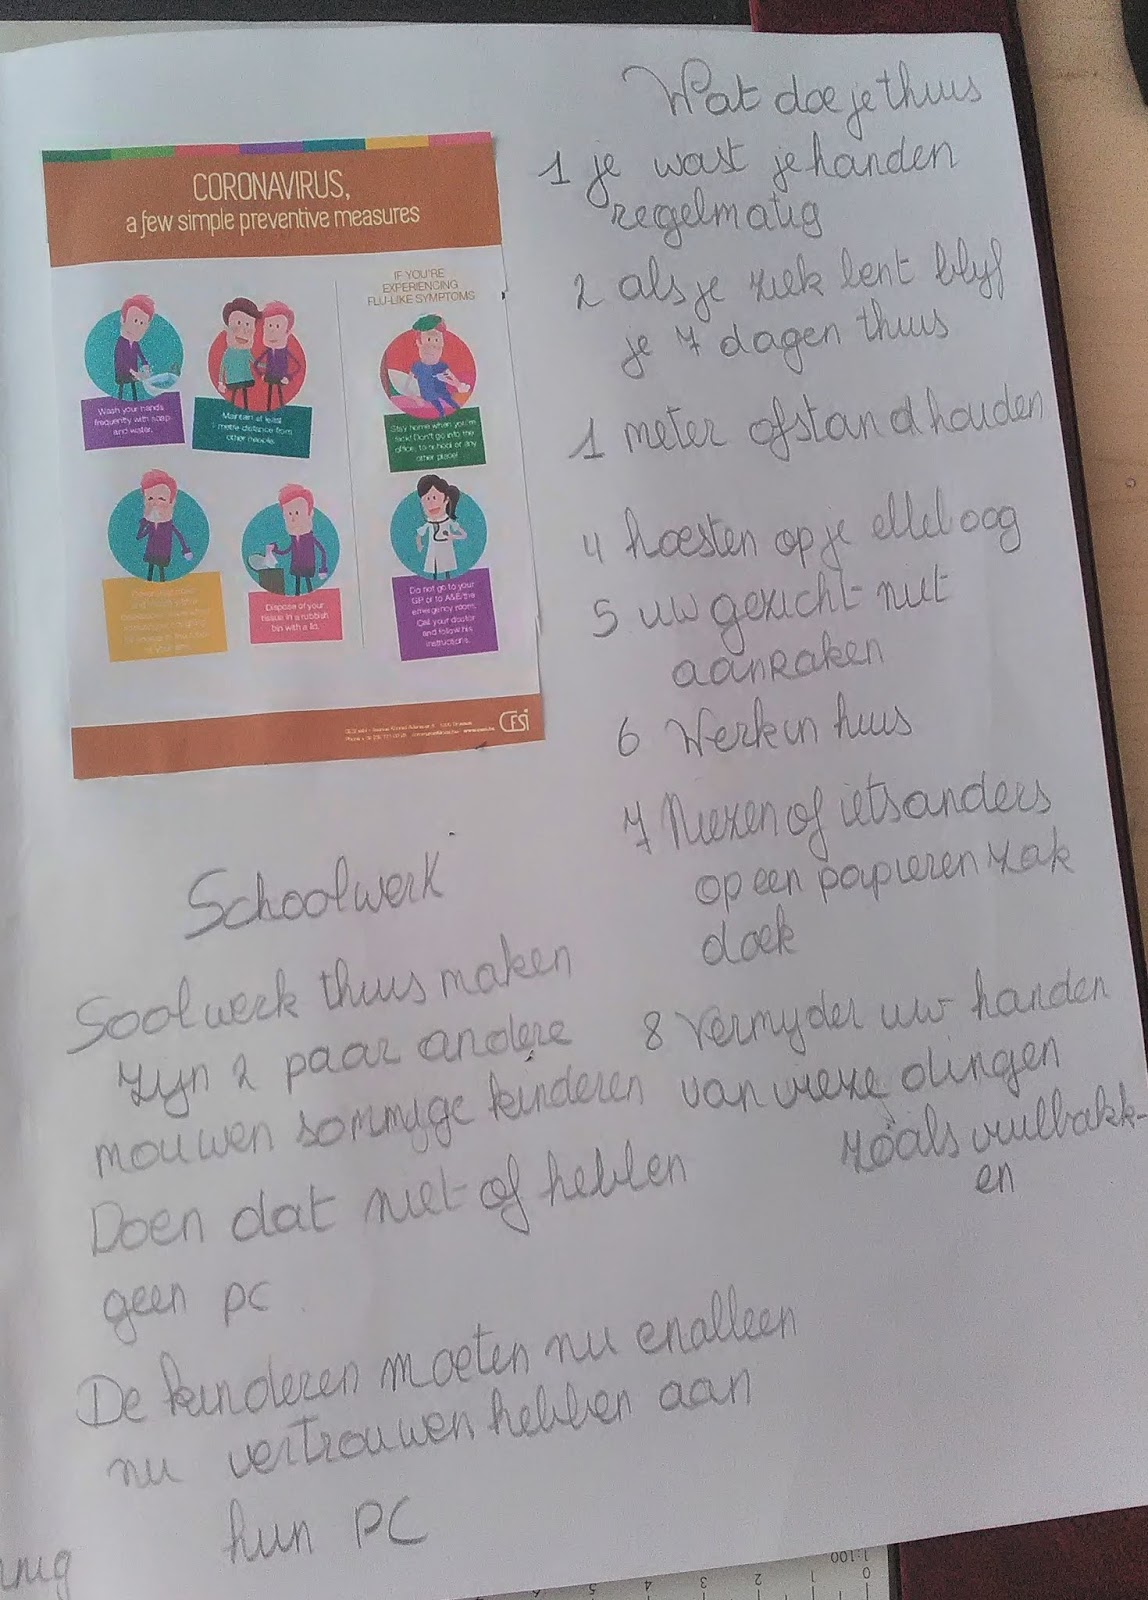 CORONAVIRUS,
a few simple preventive measures
IF YOU'RE
EXPERIENCING
FLU-LIKE SYMPTOMS
Wash your hands
frequently with soap
and water.
Maintain at least
1 metre distance from
other people.
Stay home when you're
sick! Don't go into the
office, to school or any
other place!
Dispose of your
tissue in a rubbish
bin with a lid.
Do not go to your
GP or to A&E/the
emergency room.
Call your doctor
and follow his
instructions.
CESI
Wat doe je thuis
1 je wast je handen
regelmatig
2 als je ziek bent blijf
je 7 dagen thuis
1 meter afstand houden
4 hoesten op je elleboog
5 uw gezicht niet
aanraken
6 Werk in huis
7 Niezen of iets anders
op een papieren zak
doek
8 Vermijder uw handen
van vieze dingen
zoals vuilbakk-
en
Schoolwerk
Soolwerk thuis maken
zijn 2 paar andere
mouwen sommige kinderen
Doen dat niet of hebben
geen pc
De kinderen moeten nu enalleen
nu vertrouwen hebben aan
hun PC
1:100
0 1 2 3 4 5 6